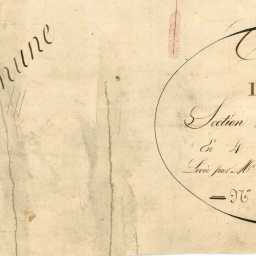 mune
1
Section
En 4
Levé par Mr
N°